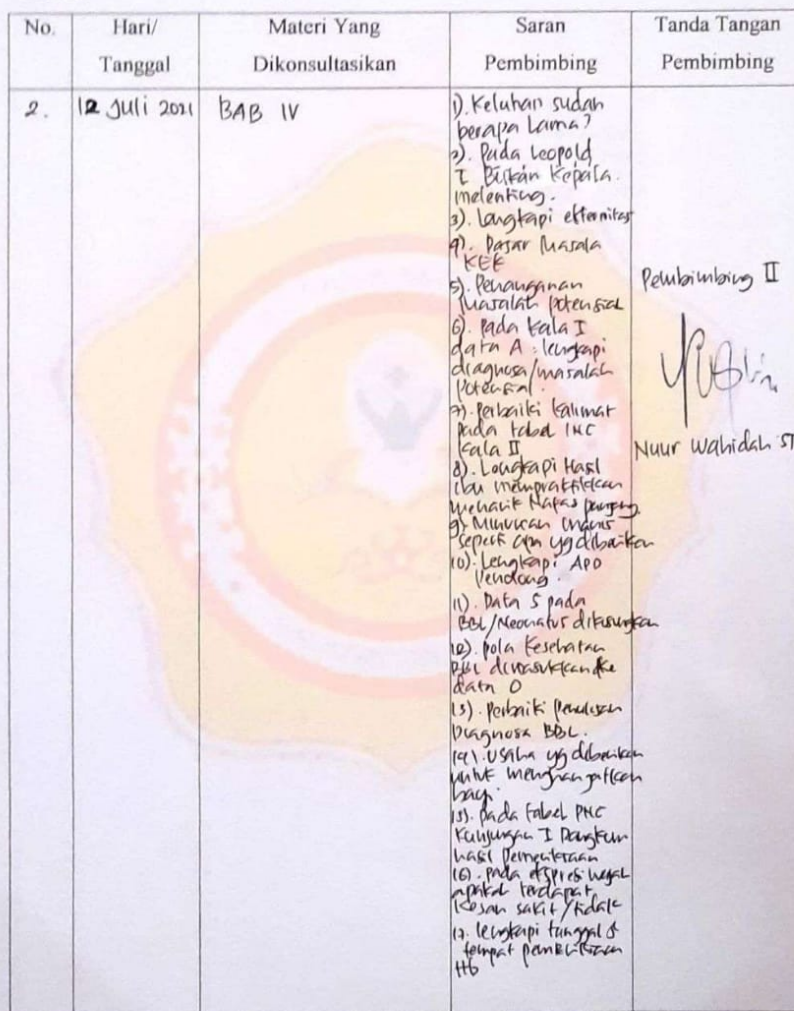 No.
Hari/
Tanggal
Materi Yang
Dikonsultasikan
Saran
Pembimbing
Tanda Tangan
Pembimbing
2.
12 Juli 2021
BAB IV
1). Keluhan sudah
berapa Lama?
2). Pada Leopold
I Kepala
melenting.
3). Lengkapi
4). Dasar Masala
KEK
5). Penanganan
Masalah potensial
6). Pada Kala I
data A : lengkapi
diagnosa/masalah
Potensial.
7). Perbaiki Kalimat
pada tabel INC
Kala II
8). Lengkapi Hasil
ibu mempraktikkan
menarik Napas panjang
9). Minuman
seperti apa yg diberikan
10). Lengkapi APD
11). Data S pada
BBL/Neonatus
12). pola Kesehatan
BBL dimasukkan ke
data O
13). Perbaiki Penulisan
Diagnosa BBL.
14). Usaha yg diberikan
untuk menghangatkan
bayi.
15). Pada tabel PNC
Kunjungan I
hasil Pemeriksaan
16). Pada
apakah terdapat
Kesan sakit/tidak
17. lengkapi tanggal &
tempat pemeriksaan
Hb
Pembimbing II
Nuur Wahidah